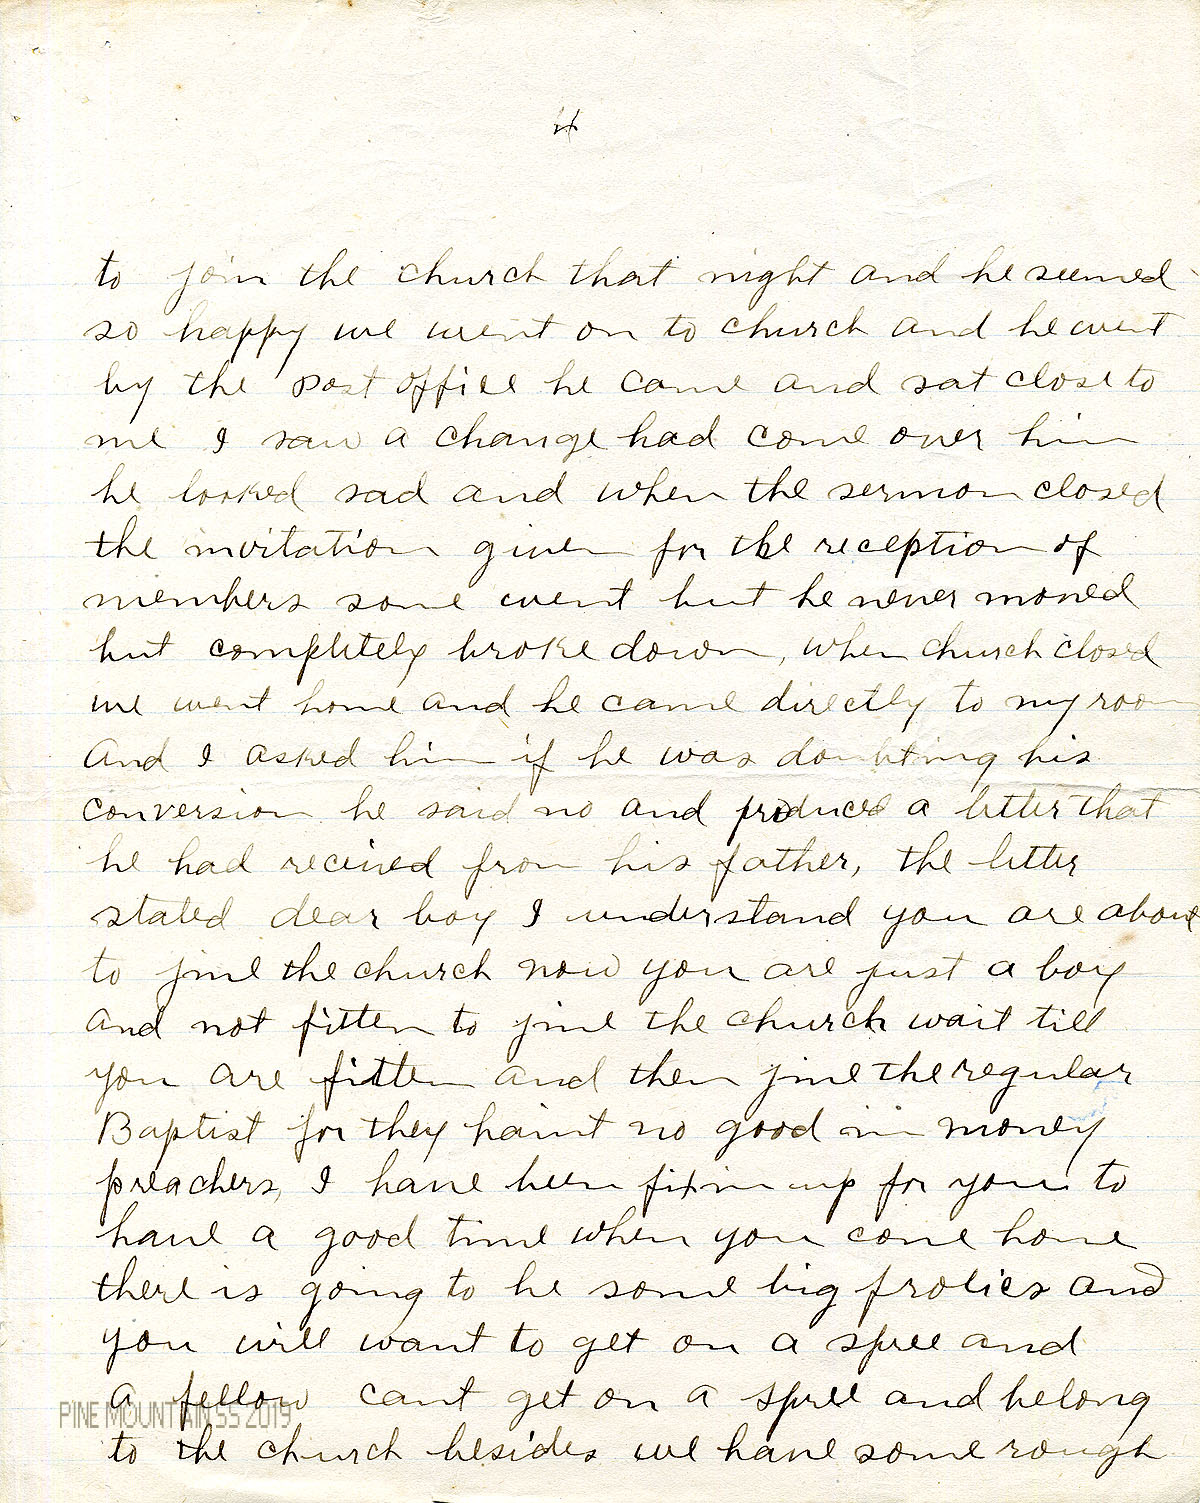 4
to join the church that night and he seemed
so happy we went on to church and he went
by the post office he came and sat close to
me I saw a change had come over him
he looked sad and when the sermon closed
the invitation given for the reception of
members some went but he never moved
but completely broke down, when church closed
we went home and he came directly to my room
And I asked him if he was doubting his
conversion he said no and produced a letter that
he had received from his father, the letter
stated dear boy I understand you are about
to jine the church now you are just a boy
and not fitten to jine the church wait till
you are fitten and then jine the regular
Baptist for they haint no good in money
preachers, I have been fixin up for you to
have a good time when you come home
there is going to be some big frolics and
you will want to get on a spree and
a fellow cant get on a spree and belong
to the church besides we have some rough
PINE MOUNTAIN SS 2019